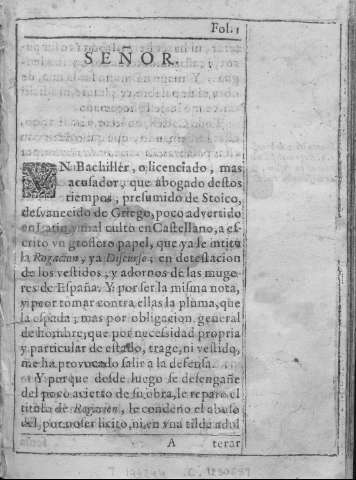 Fol. 1
SEÑOR.
VN Bachiller, o licenciado, mas
acusador, que abogado destos
tiempos, presumido de Stoico,
desvanecido de Griego, poco advertido
en Latin, y mal culto en Castellano, a es-
crito vn grossero papel, que ya le intitu
la Rogacion, ya Discurso; en detestacion
de los vestidos, y adornos de las muge-
res de España. Y por ser la misma nota,
y peor tomar contra ellas la pluma, que
la espada; mas por obligacion general
de hombre, que por necessidad propria
y particular de estado, trage, ni vestido,
me ha provocado salir a la defensa.
Y porque desde luego se desengañe
del poco acierto de su obra, le reparo el
titulo de Rogacion, le condeno el abuso
del, por no ser licito, ni en vna tilde adul
A terar